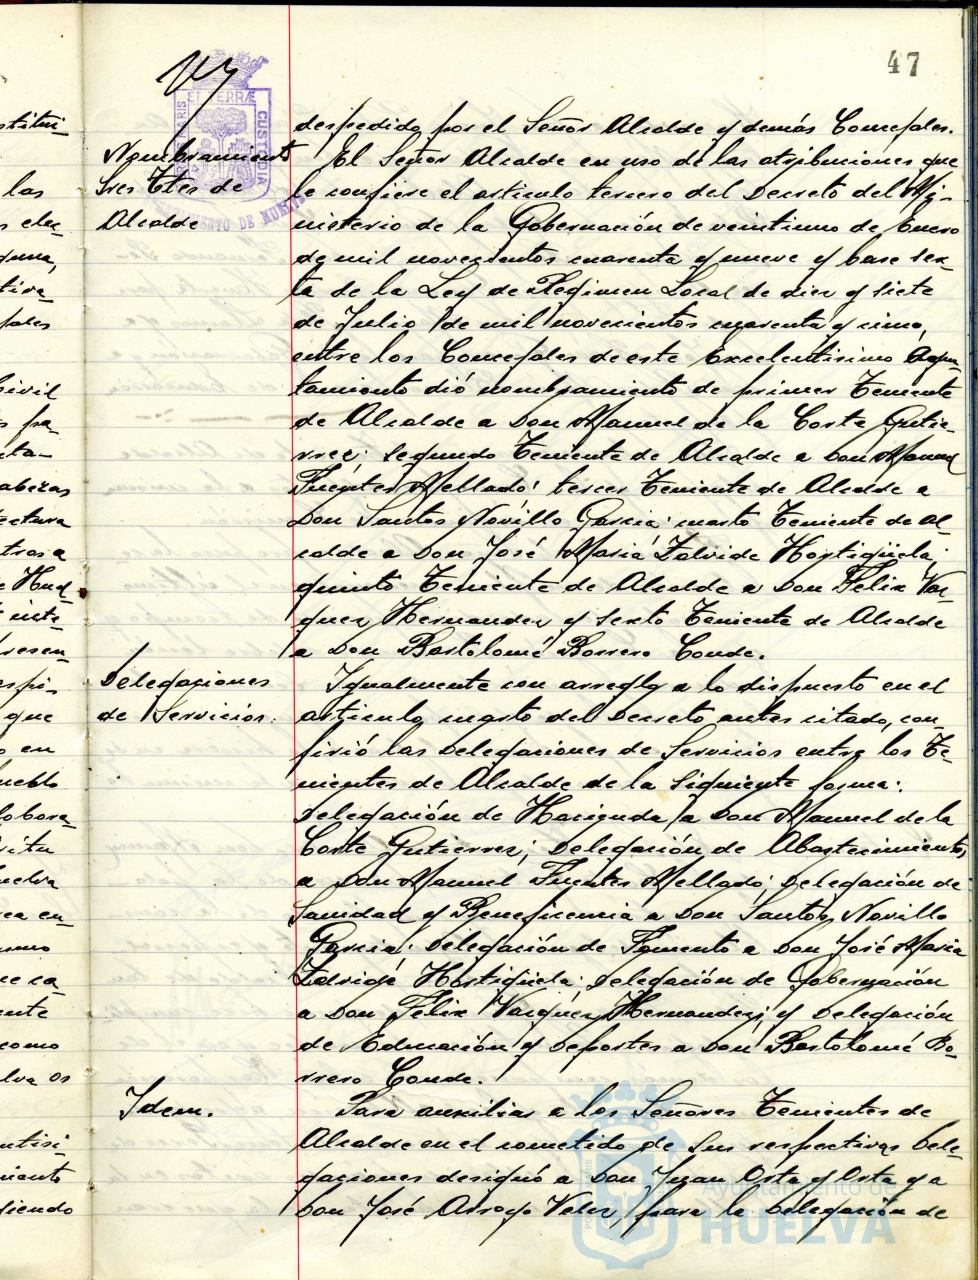 47
despedido por el Señor Alcalde y demás Concejales.
Nombramiento
Sres Ttes de
Alcalde
El Señor Alcalde en uso de las atribuciones que
le confiere el articulo tercero del Decreto del Mi-
nisterio de la Gobernación de veintiuno de Enero
de mil novecientos cuarenta y nueve y base sex-
ta de la Ley de Regimen Local de diez y siete
de Julio de mil novecientos cuarenta y cinco,
entre los Concejales de este Excelentisimo Ayun-
tamiento dió nombramiento de primer Teniente
de Alcalde a Don Manuel de la Corte Gutie-
rrez; segundo Teniente de Alcalde a Don Manuel
Fuentes Mellado; tercer Teniente de Alcalde a
Don Santos Novillo Garcia; cuarto Teniente de Al
calde a Don José Maria Zalvide Hortigüela;
quinto Teniente de Alcalde a Don Felix Vaz-
quez Hernandez y sexto Teniente de Alcalde
a Don Bartolomé Borrero Conde.
Delegaciones
de Servicios.
Igualmente con arreglo a lo dispuesto en el
articulo cuarto del Decreto antes citado, con-
firió las Delegaciones de Servicios entre los Te-
nientes de Alcalde de la siguiente forma:
Delegación de Hacienda a Don Manuel de la
Corte Gutierrez; Delegación de Abastecimientos
a Don Manuel Fuentes Mellado; Delegación de
Sanidad y Beneficencia a Don Santos Novillo
Garcia; Delegación de Fomento a Don José Maria
Zalvide Hortigüela; Delegación de Gobernación
a Don Felix Vazquez Hernandez; y Delegación
de Educación y Deportes a Don Bartolomé Bo-
rrero Conde.
Idem.
Para auxiliar a los Señores Tenientes de
Alcalde en el cometido de sus respectivas Dele-
gaciones designó a Don Juan Orta y Orta y a
Don José Arroyo Velez para la Delegación de
Ayuntamiento de
HUELVA